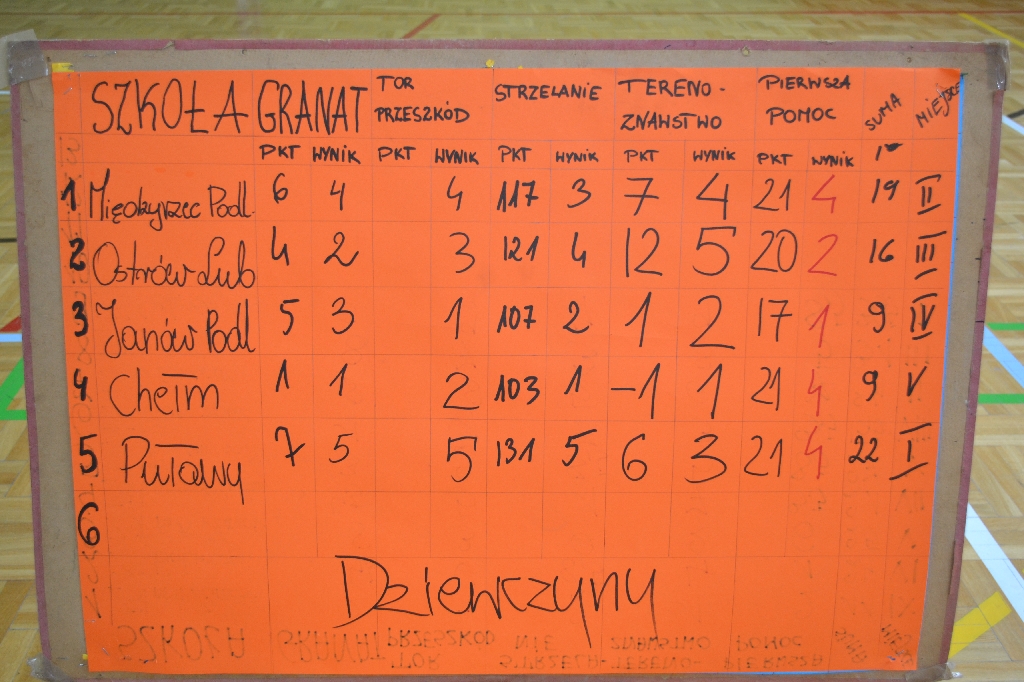 SZKOŁA GRANAT TOR PRZESZKÓD STRZELANIE TERENO-ZNAWSTWO PIERWSZA POMOC SUMA MIEJSCE
PKT WYNIK PKT WYNIK PKT WYNIK PKT WYNIK PKT WYNIK
1 Międzyrzec Podl. 6 4 4 117 3 7 4 21 4 19 II
2 Ostrów Lub 4 2 3 121 4 12 5 20 2 16 III
3 Janów Podl 5 3 1 107 2 1 2 17 1 9 IV
4 Chełm 1 1 2 103 1 -1 1 21 4 9 V
5 Puławy 7 5 5 131 5 6 3 21 4 22 I
6
Dziewczyny